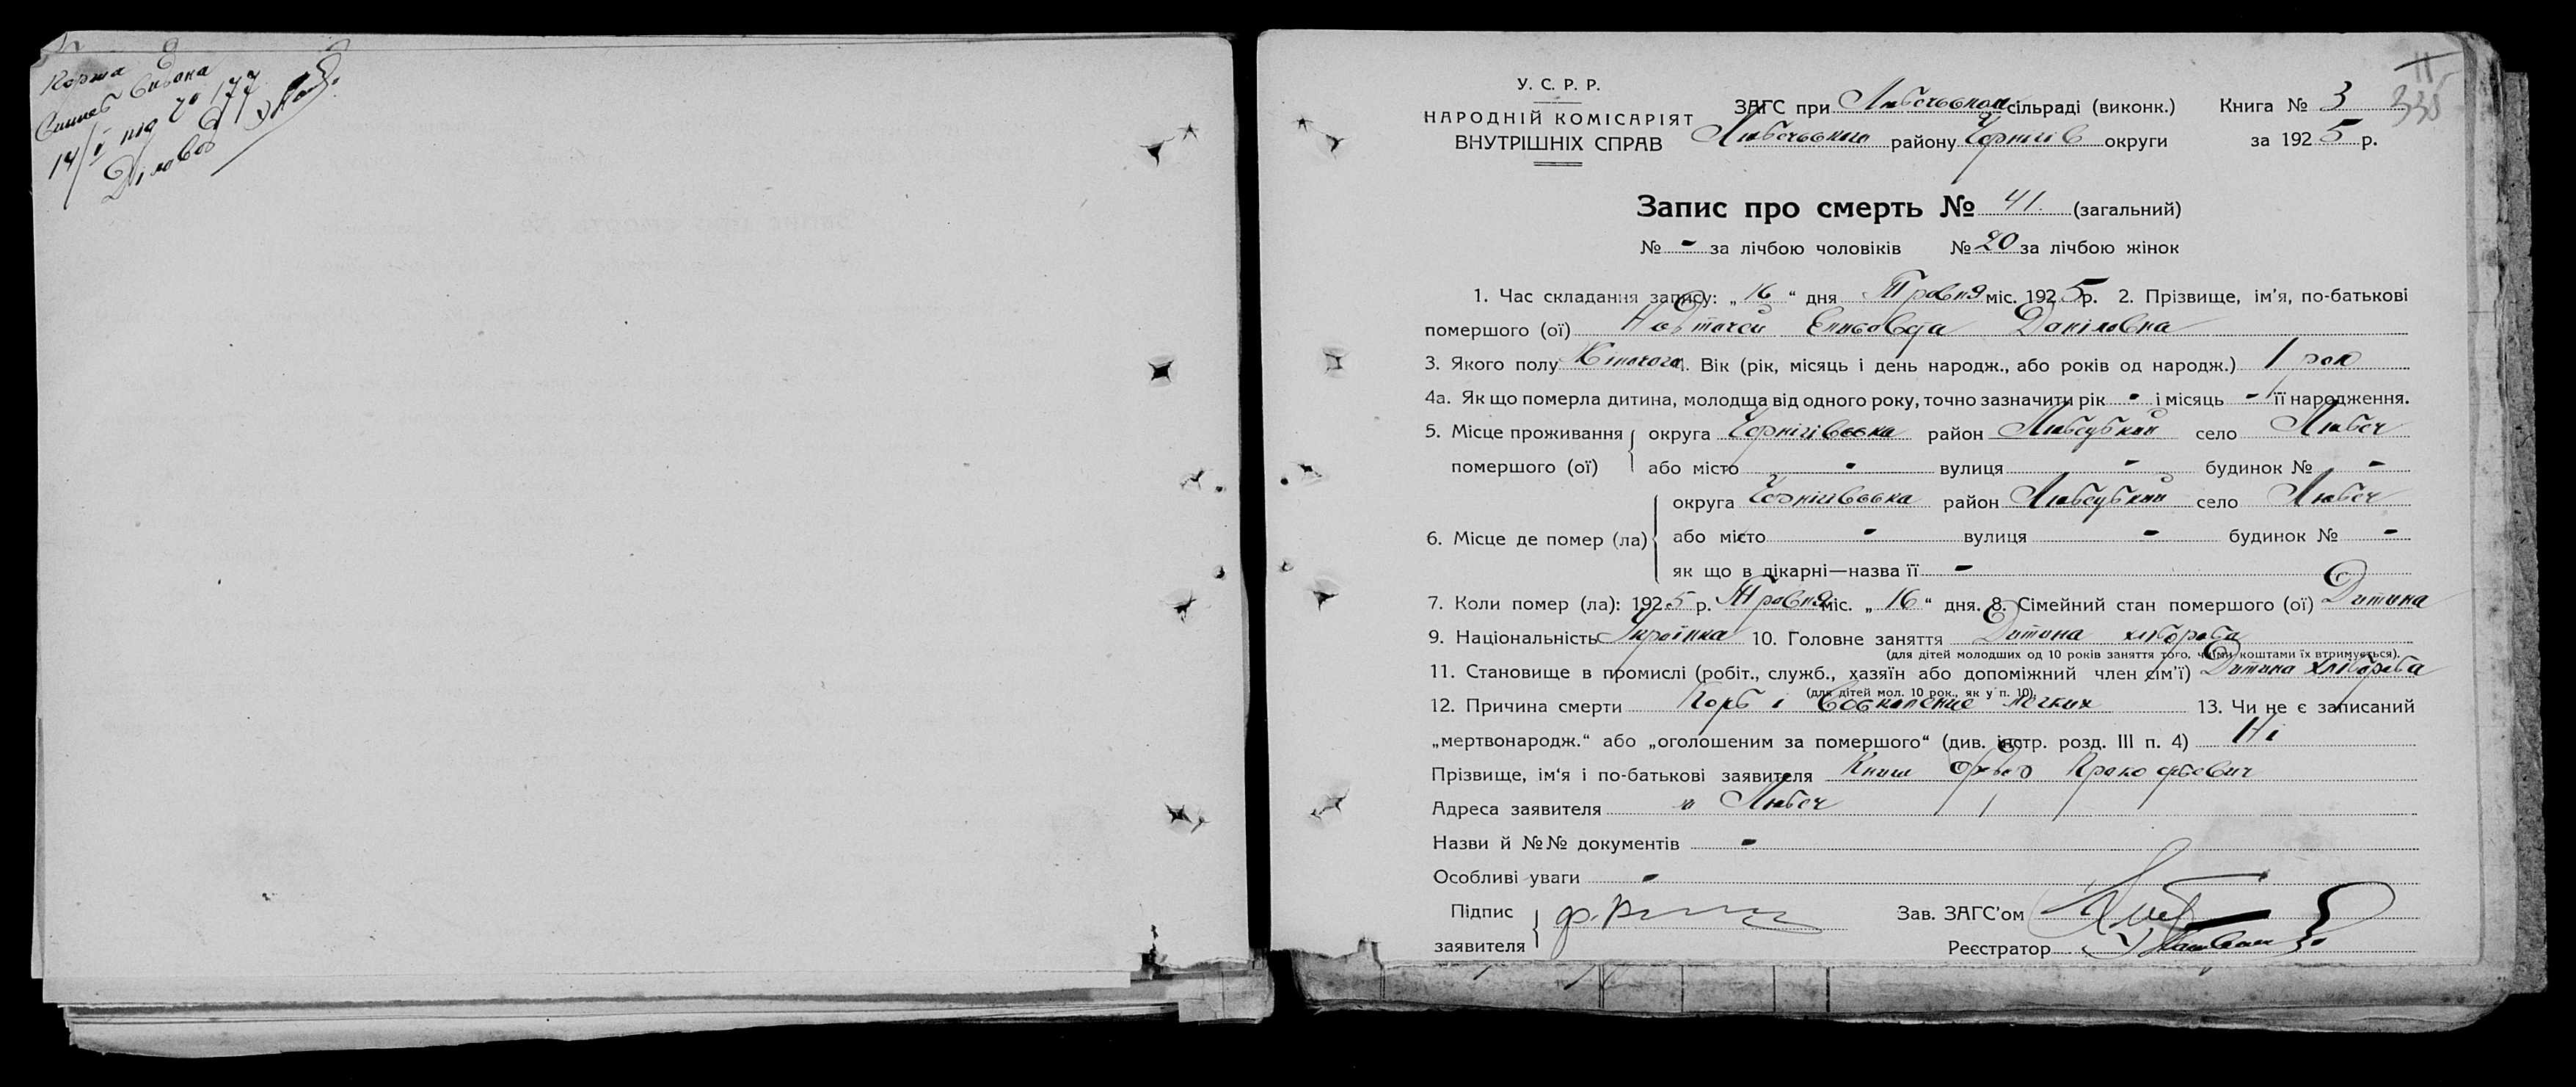 14/V під № 177
У. С. Р. Р.
НАРОДНІЙ КОМІСАРІЯТ
ВНУТРІШНІХ СПРАВ
ЗАГС при Любечській сільраді (виконк.) Книга № 3
335
Любечського району Чернігів округи за 1925 р.
Запис про смерть № 41. (загальний)
№ - за лічбою чоловіків № 20 за лічбою жінок
1. Час складання запису: „16“ дня Травня міс. 1925 р. 2. Прізвище, ім’я, по-батькові
помершого (ої) Елисавета Даніловна
3. Якого полу Жіночого 4. Вік (рік, місяць і день народж., або років од народж.) 1 рок
4а. Як що померла дитина, молодща від одного року, точно зазначити рік - і місяць - її народження.
5. Місце проживання округа Чернігівська район Любецький село Любеч
помершого (ої) або місто - вулиця - будинок № -
округа Чернігівська район Любецький село Любеч
6. Місце де помер (ла) або місто - вулиця - будинок № -
як що в лікарні—назва її -
7. Коли помер (ла): 1925 р. Травня міс. „16“ дня. 8. Сімейний стан помершого (ої) Дитина
9. Національність Українка 10. Головне заняття Дитина хлібороба
(для дітей молодших од 10 років заняття того, чиїми коштами їх втримується).
11. Становище в промислі (робіт., служб., хазяїн або допоміжний член сім’ї) Дитина хлібороба
(для дітей мол. 10 рок., як у п. 10).
12. Причина смерти Корь і Воспаление легких 13. Чи не є записаний
„мертвонародж.“ або „оголошеним за помершого“ (див. інстр. розд. III п. 4) Ні
Прізвище, ім‘я і по-батькові заявителя Книш Прокофьевич
Адреса заявителя м Любеч
Назви й №№ документів -
Особливі уваги -
Підпис
заявителя
Зав. ЗАГС’ом
Реєстратор